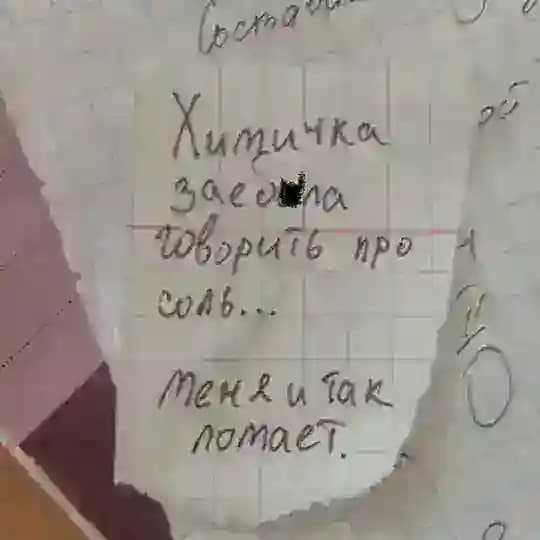 Состави
ой
Химичка
заео ла
говорить про
соль...
меня и так
ломает.